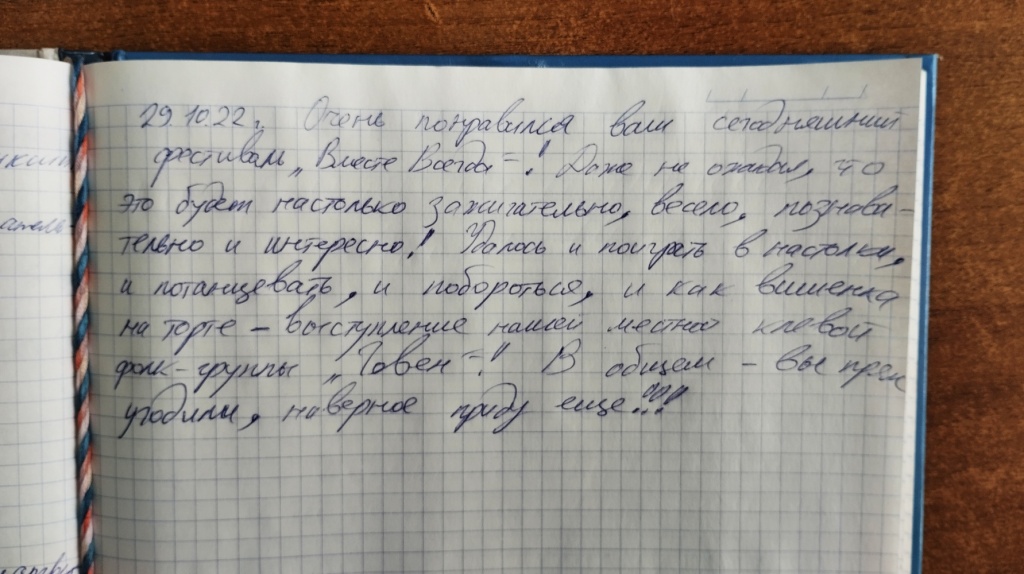 29.10.22г. Очень понравился ваш сегодняшний
фестиваль „Вместе Всегда“! Даже не ожидал, что
это будет настолько зажигательно, весело, познава-
тельно и интересно! Удалось и поиграть в настолки,
и потанцевать, и побороться, и как вишенка
на торте – выступление нашей местной клевой
фолк-группы „Говен“! В общем – вы прям
угодили, наверное приду еще!!!